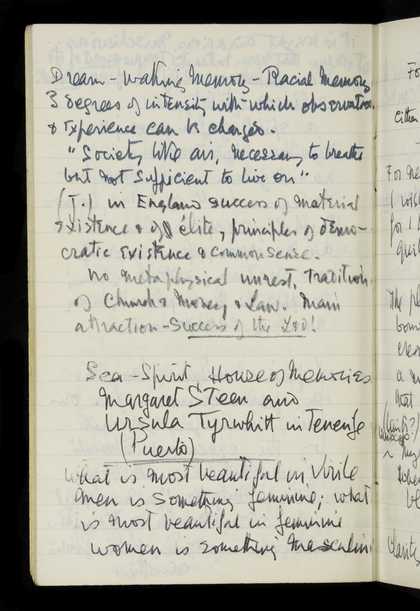 Dream - Walking Memory - Racial Memory
3 degrees of intensity with which observation
& Experience can be changed.
"Society like air, necessary to breathe
but not sufficient to live on"
in England success of material
existence & of élite, principles of demo-
cratic existence & common sense.
no metaphysical unrest. Tradition
of Church & Money & Law. Main
attraction - Success of the Zoo!
Sea-Spirit House of Memories
Margaret Steen and
Ursula Tyrwhitt in Tenerife
(Puerto)
What is most beautiful in Virile
men is something feminine; what
is most beautiful in feminine
women is something masculin